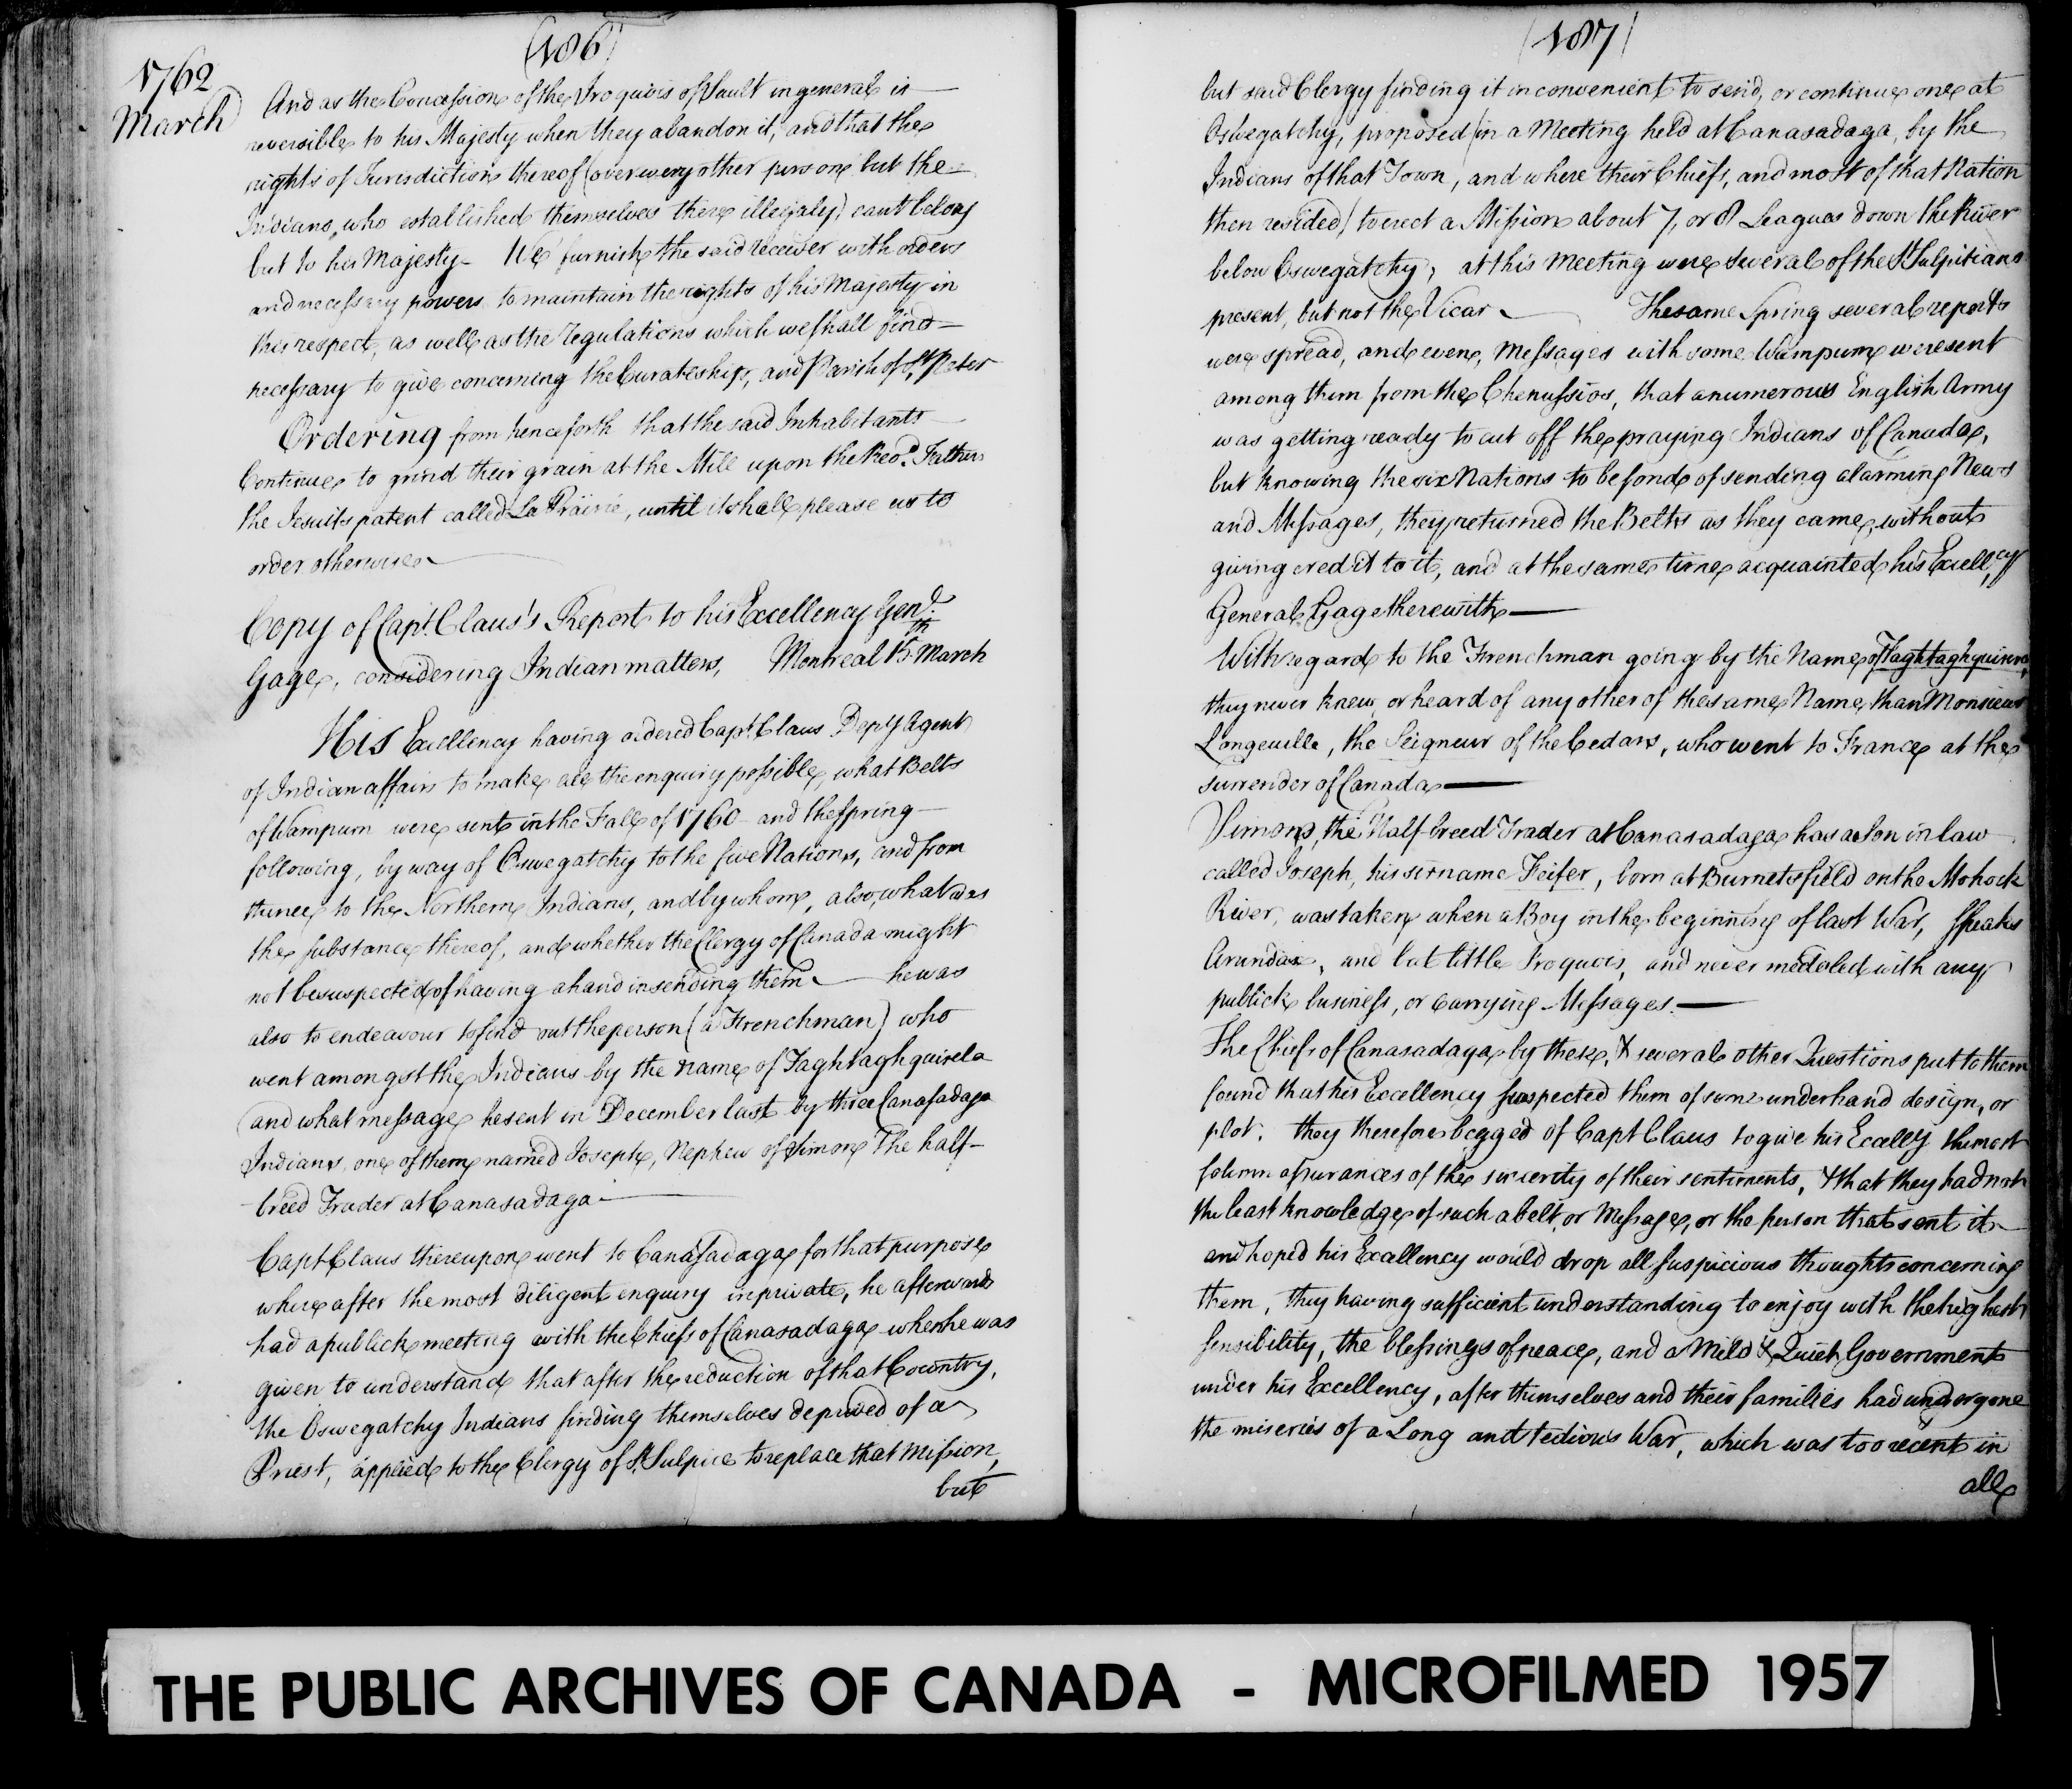 (186)
1762
March
And as the Concession of the Iroquois of Sault in general is
reversible to his Majesty when they abandon it, and that the
rights of Jurisdiction thereof (over every other person but the
Indians, who established themselves there illegaly) cant belong
but to his Majesty – We furnish the said receiver with orders
and necessary powers to maintain the rights of his Majesty in
this respect, as well as the regulations which we shall find
necessary to give concerning the Curateship, and Parish of St. Peter
Ordering from henceforth that the said Inhabitants
Continue to grind their grain at the Mill upon the Revd. Fathers
the Jesuits patent called La Prairie, until it shall please us to
order otherwise
Copy of Capt. Claus's Report to his Excellency Genl.
Gage, considering Indian matters, Montreal 15th March
His Excellency having ordered Capt. Claus Depty Agent
of Indian affairs to make all the enquiry possible, what Belts
of Wampum were sent in the Fall of 1760 and the Spring
following, by way of Oswegatchy to the five Nations, and from
thence to the Northern Indians, and by whom, also, what was
the substance thereof, and whether the Clergy of Canada might
not be suspected of having a hand in sending them – he was
also to endeavour to find out the person (a Frenchman) who
went amongst the Indians by the name of Taghtaghquisela
and what message he sent in December last by three Canasadaga
Indians, one of them named Joseph, Nephew of Simon The half-
-breed Trader at Canasadaga
Capt Claus thereupon went to Canasadaga for that purpose
where after the most diligent enquiry in private, he afterwards
had a publick meeting with the Chiefs of Canasadaga when he was
given to understand that after the reduction of that Country,
the Oswegatchy Indians finding themselves deprived of a
Priest, applied to the Clergy of St. Sulpice to replace that Mission,
but
(187)
but said Clergy finding it inconvenient to send, or continue one at
Oswegatchy, proposed (in a Meeting held at Canasadaga, by the
Indians of that Town, and where their Chiefs, and most of that Nation
then resided) to erect a Mission about 7, or 8 Leagues down the River
below Oswegatchy; at this Meeting were several of the St Sulpitians
present, but not the Vicar – The same Spring several reports
were spread, and even, Messages with some Wampum were sent
among them from the Chenussios, that a numerous English Army
was getting ready to cut off the praying Indians of Canada,
but knowing the six Nations to be fond of sending alarming News
and Messages, they returned the Belts as they came, without
giving credit to it, and at the same time acquainted his Excellcy
General Gage therewith —
With regard to the Frenchman going by the Name of Taghtaghquisera,
they never knew, or heard of any other of the same Name than Monsieur
Longeuille, the Seigneur of the Cedars, who went to France at the
surrender of Canada —
Simon, the Half-breed Trader at Canasadaga has a Son in law
called Joseph, his sirname Feifer, born at Burnetsfield on the Mohock
River, was taken when a Boy in the beginning of last War, Speaks
Arundax, and but little Iroquois, and never medeled with any
publick business, or carrying Messages. —
The Chiefs of Canasadaga by these, & several other Questions put to them
found that his Excellency suspected them of some underhand design, or
plot. they therefore begged of Capt Claus to give his Excelly the most
solemn assurances of the sincerity of their sentiments, & that they had not
the least knowledge of such a belt, or Message, or the person that sent it
and hoped his Excellency would drop all suspicious thoughts concerning
them, they having sufficient understanding to enjoy with the highest
sensibility, the blessings of peace, and a Mild & Quiet Government
under his Excellency, after themselves and their families had undergone
the miseries of a Long and tedious War, which was too recent in
all
THE PUBLIC ARCHIVES OF CANADA - MICROFILMED 1957